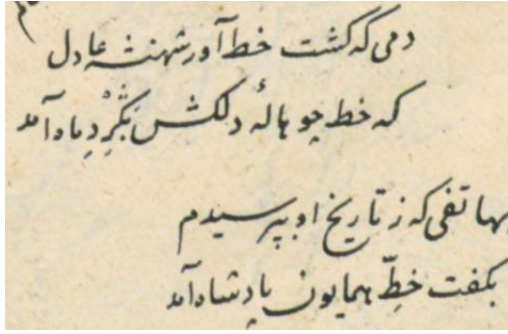 دمی که گشت خط آور شهنشه عادل
که خط چو هالهٔ دلکش بگردِ ماه آمد
بهاتفی که ز تاریخ او بپرسیدم
بگفت خطِّ همایون پادشاه آمد